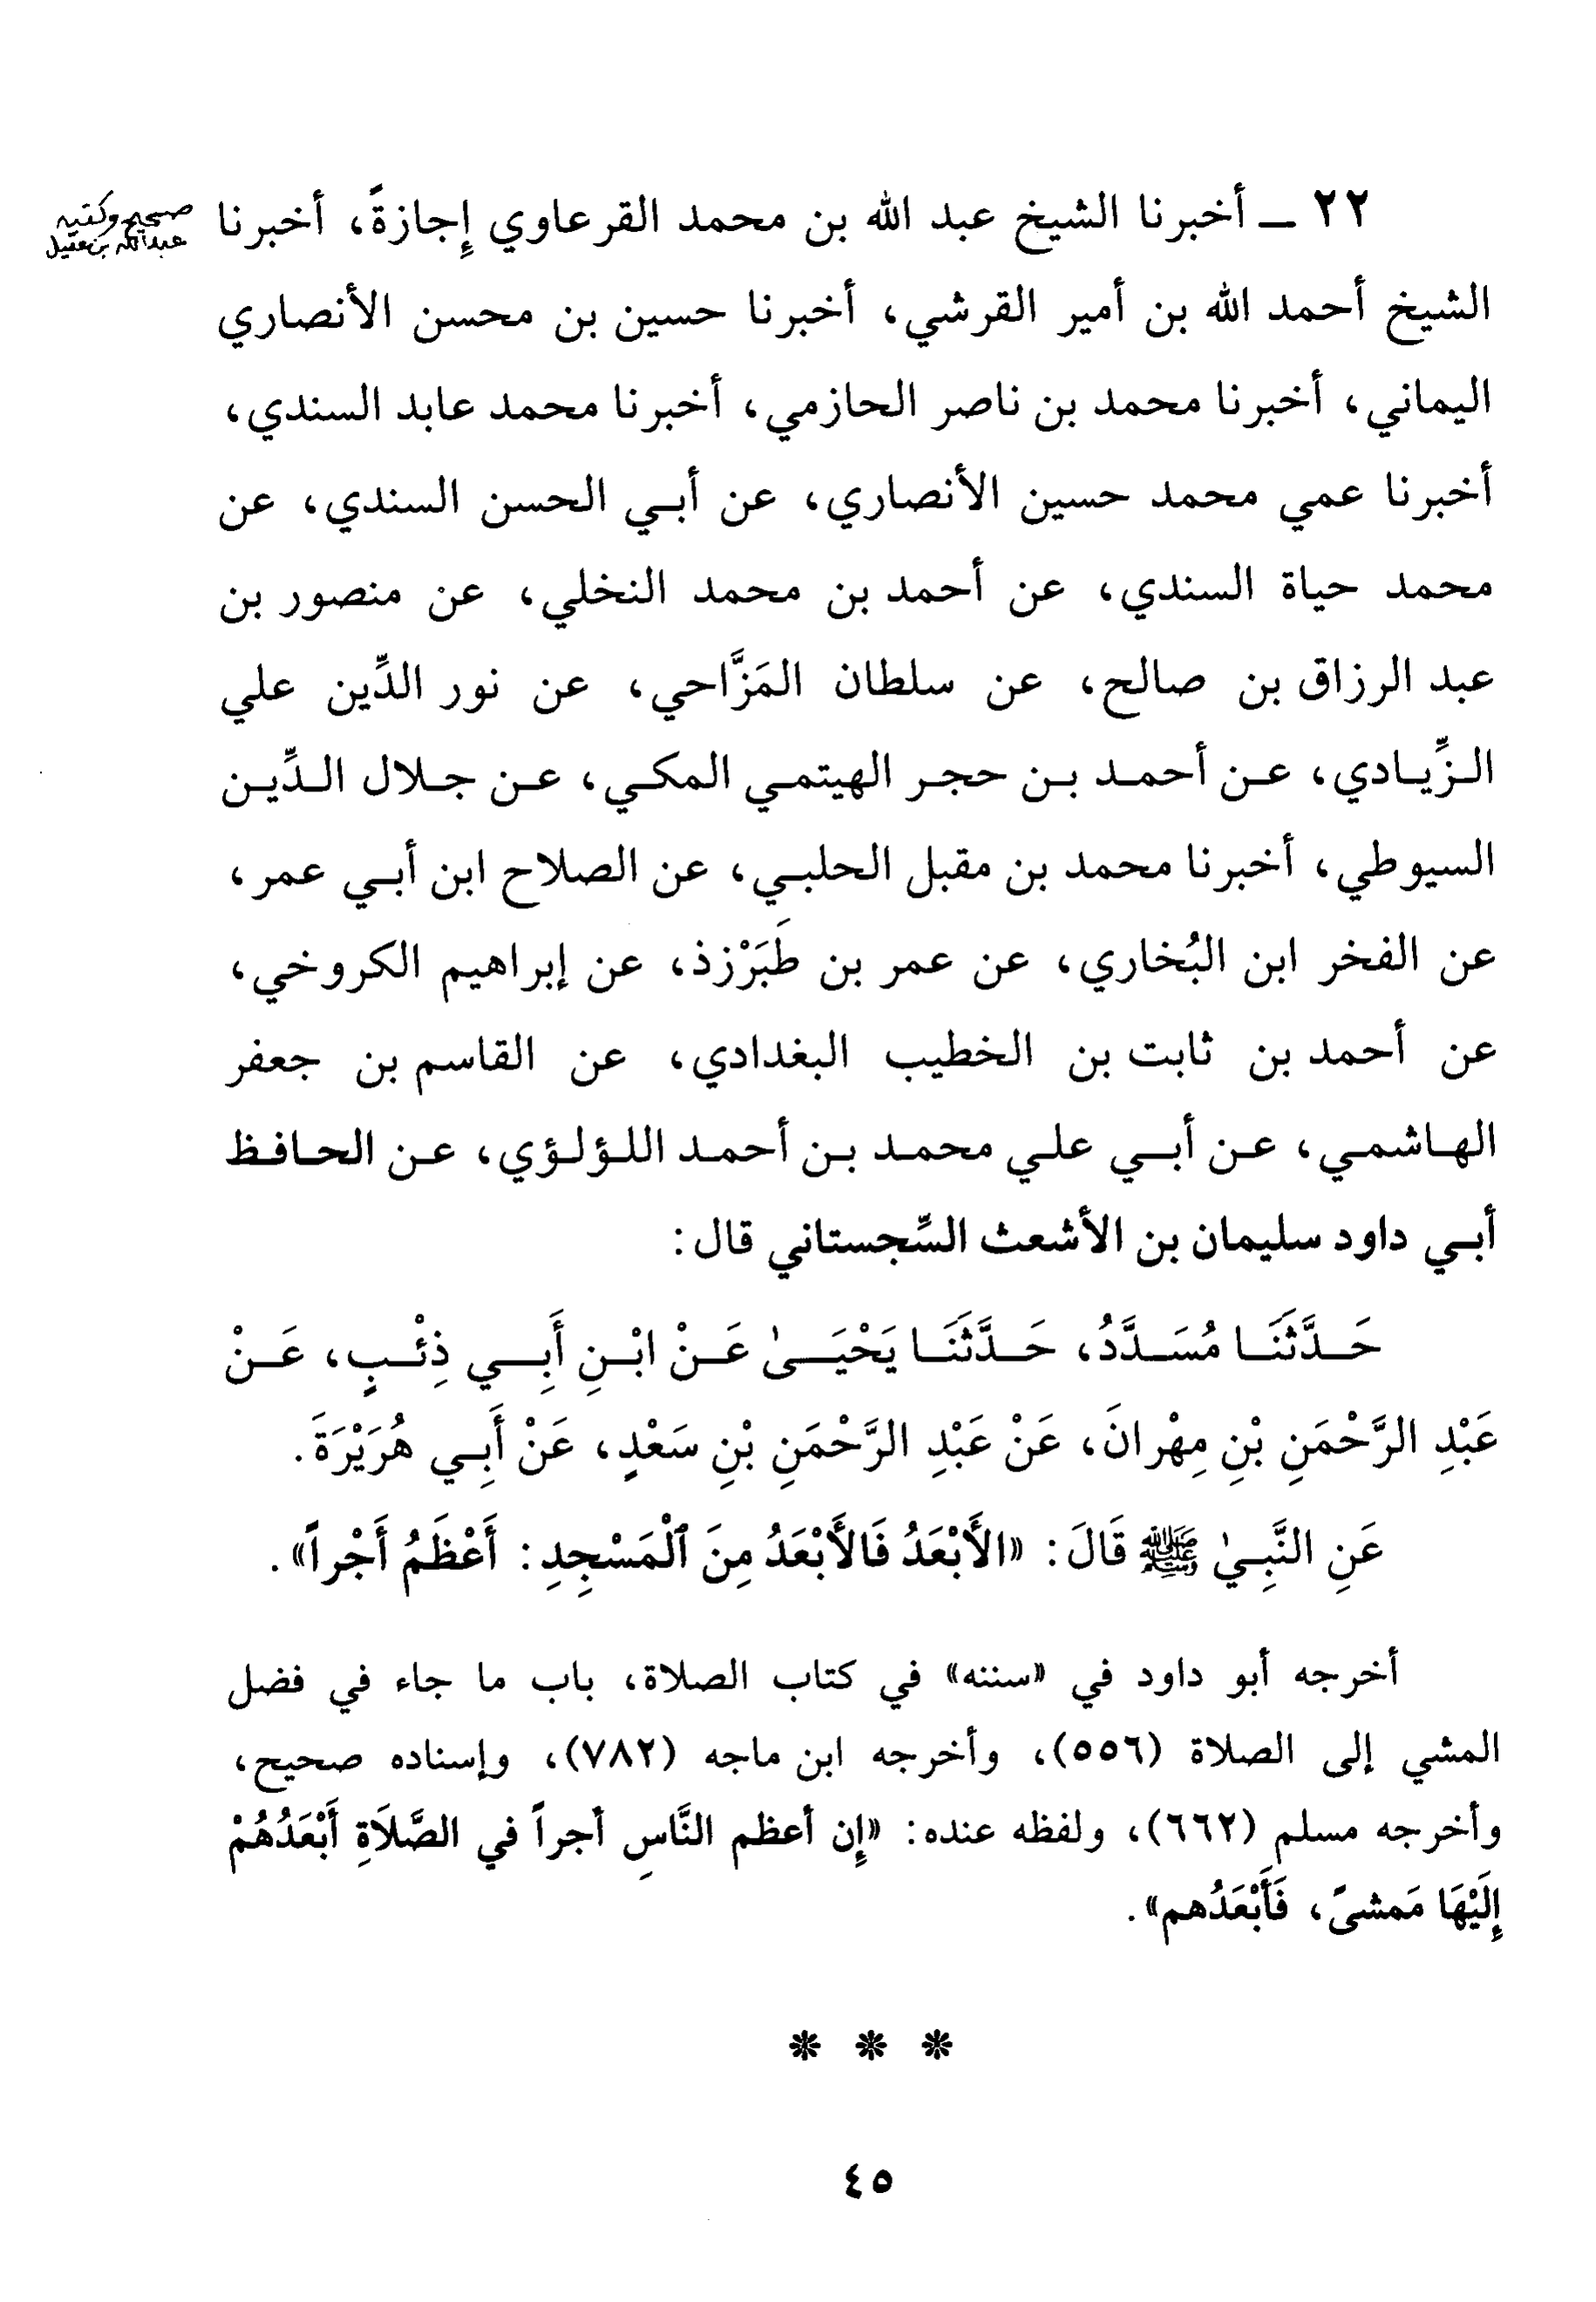 ٢٢ ــ أخبرنا الشيخ عبد الله بن محمد القرعاوي إِجازةً، أخبرنا
صحيح وكتبه
عبدالله بن عقيل
الشيخ أحمد الله بن أمير القرشي، أخبرنا حسين بن محسن الأنصاري
اليماني، أخبرنا محمد بن ناصر الحازمي، أخبرنا محمد عابد السندي،
أخبرنا عمي محمد حسين الأنصاري، عن أبـي الحسن السندي، عن
محمد حياة السندي، عن أحمد بن محمد النخلي، عن منصور بن
عبد الرزاق بن صالح، عن سلطان المَزَّاحي، عن نور الدِّين علي
الـزِّيـادي، عـن أحمـد بـن حجـر الهيتمـي المكـي، عـن جـلال الـدِّيـن
السيوطي، أخبرنا محمد بن مقبل الحلبـي، عن الصلاح ابن أبـي عمر،
عن الفخر ابن البُخاري، عن عمر بن طَبَرْزذ، عن إبراهيم الكروخي،
عن أحمد بن ثابت بن الخطيب البغدادي، عن القاسم بن جعفر
الهـاشمـي، عـن أبـي علـي محمـد بـن أحمـد اللـؤلـؤي، عـن الحـافـظ
أبـي داود سليمان بن الأشعث السِّجستاني قال:
حَـدَّثَنَـا مُسَـدَّدُ، حَـدَّثَنَـا يَحْيَـىٰ عَـنْ ابْـنِ أَبِـي ذِئْـبٍ، عَـنْ
عَبْدِ الرَّحْمَنِ بْنِ مِهْرانَ، عَنْ عَبْدِ الرَّحْمَنِ بْنِ سَعْدٍ، عَنْ أَبِـي هُرَيْرَةَ.
عَنِ النَّبِـيٰ ﷺ قَالَ: «الأَبْعَدُ فَالأَبْعَدُ مِنَ ٱلْمَسْجِدِ: أَعْظَمُ أَجْراً».
أخرجه أبو داود في «سننه» في كتاب الصلاة، باب ما جاء في فضل
المشي إلى الصلاة (٥٥٦)، وأخرجه ابن ماجه (٧٨٢)، وإسناده صحيح،
وأخرجه مسلم (٦٦٢)، ولفظه عنده: «إِن أعظم النَّاسِ أجراً في الصَّلاَةِ أَبْعَدُهُمْ
إِلَيْهَا مَمشىً، فَأَبْعَدُهم».
* * *
٤٥